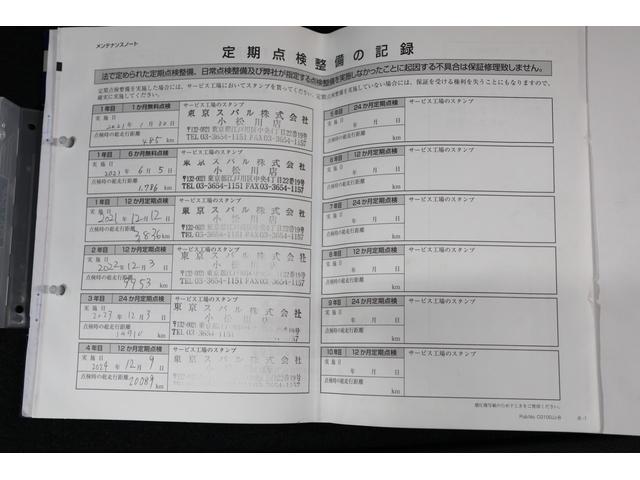 メンテナンスノート
定期点検整備の記録
法で定められた定期点検整備、日常点検整備及び弊社が指定する点検整備を実施しなかったことに起因する不具合は保証修理致しません。
定期点検整備を実施した場合には、サービス工場においてスタンプを貰ってください。定期点検整備を実施していない場合には、保証を受ける権利を失うこともありますので、
確実に実施してください。
1年目 1か月無料点検 サービス工場のスタンプ
実施日 2021年 1月30日
点検時の総走行距離 485 km
東京スバル株式会社
小松川店
〒132-0021 東京都江戸川区中央4丁目22番19号
TEL 03-3654-1151 FAX 03-3654-1157
1年目 6か月無料点検 サービス工場のスタンプ
実施日 2021年 6月 5日
点検時の総走行距離 1,786 km
東京スバル株式会社
小松川店
〒132-0021 東京都江戸川区中央4丁目22番19号
TEL 03-3654-1151 FAX 03-3654-1157
1年目 12か月定期点検 サービス工場のスタンプ
実施日 2021年 12月 12日
点検時の総走行距離 3836 km
東京スバル株式会社
小松川店
〒132-0021 東京都江戸川区中央4丁目22番19号
TEL 03-3654-1151 FAX 03-3654-1157
2年目 12か月定期点検 サービス工場のスタンプ
実施日 2022年 12月 3日
点検時の総走行距離 9953 km
東京スバル株式会社
小松川店
〒132-0021 東京都江戸川区中央4丁目22番19号
TEL 03-3654-1151 FAX 03-3654-1157
3年目 24か月定期点検 サービス工場のスタンプ
実施日 2023年 12月 3日
点検時の総走行距離 km
東京スバル株式会社
小松川店
TEL 03-3654-1151
4年目 12か月定期点検 サービス工場のスタンプ
実施日 2024年 12月 9日
点検時の総走行距離 20089 km
東京スバル株式会社
5年目 24か月定期点検 サービス工場のスタンプ
実施日 年 月 日
点検時の総走行距離 km
サービス工場のスタンプ
実施日 年 月 日
点検時の総走行距離 km
7年目 24か月定期点検 サービス工場のスタンプ
実施日 年 月 日
点検時の総走行距離 km
12か月定期点検 サービス工場のスタンプ
実施日 年 月 日
点検時の総走行距離 km
9年目 24か月定期点検 サービス工場のスタンプ
実施日 年 月 日
点検時の総走行距離 km
10年目 12か月定期点検 サービス工場のスタンプ
実施日 年 月 日
点検時の総走行距離 km